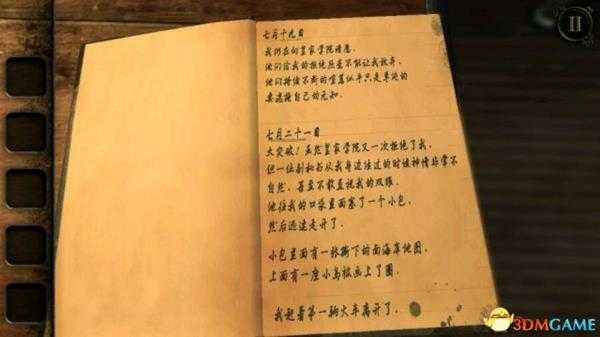 七月十九日
我们在向皇家学院请愿。
他们给我的拒绝丝毫不能让我放弃,
他们持续不断的嘲骂似乎只是单纯的
要遮掩自己的无知。
七月二十一日
大突破!虽然皇家学院又一次拒绝了我,
但一位副秘书从我身边经过的时候神情非常不
自然,甚至不敢直视我的双眼。
他往我的口袋里面塞了一个小包,
然后迅速走开了。
小包里面有一张撕下的南海岸地图,
上面有一座小岛被画上了圈。
我赶着第一辆火车离开了。
3DMGAME